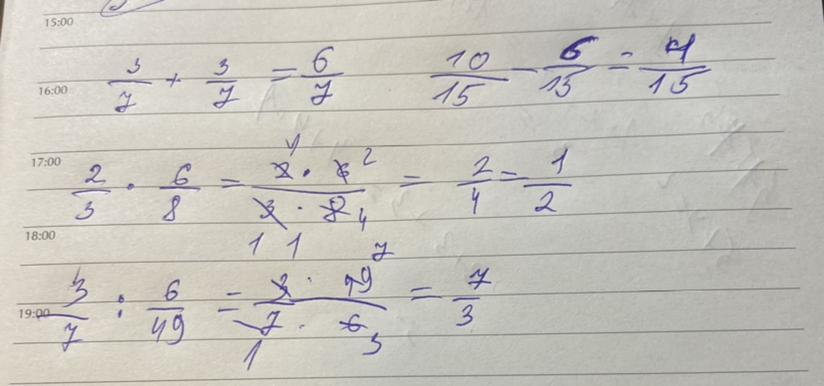 15:00
16:00 3/7 + 3/7 = 6/7 10/15 - 6/15 = 4/15
17:00 2/3 · 6/8 = 2 · 6 / 3 · 8 = 2/4 = 1/2
1 2 4 1 1
18:00
19:00 3/7 : 6/49 = 3 · 49 / 7 · 6 = 7/3
7 1 3